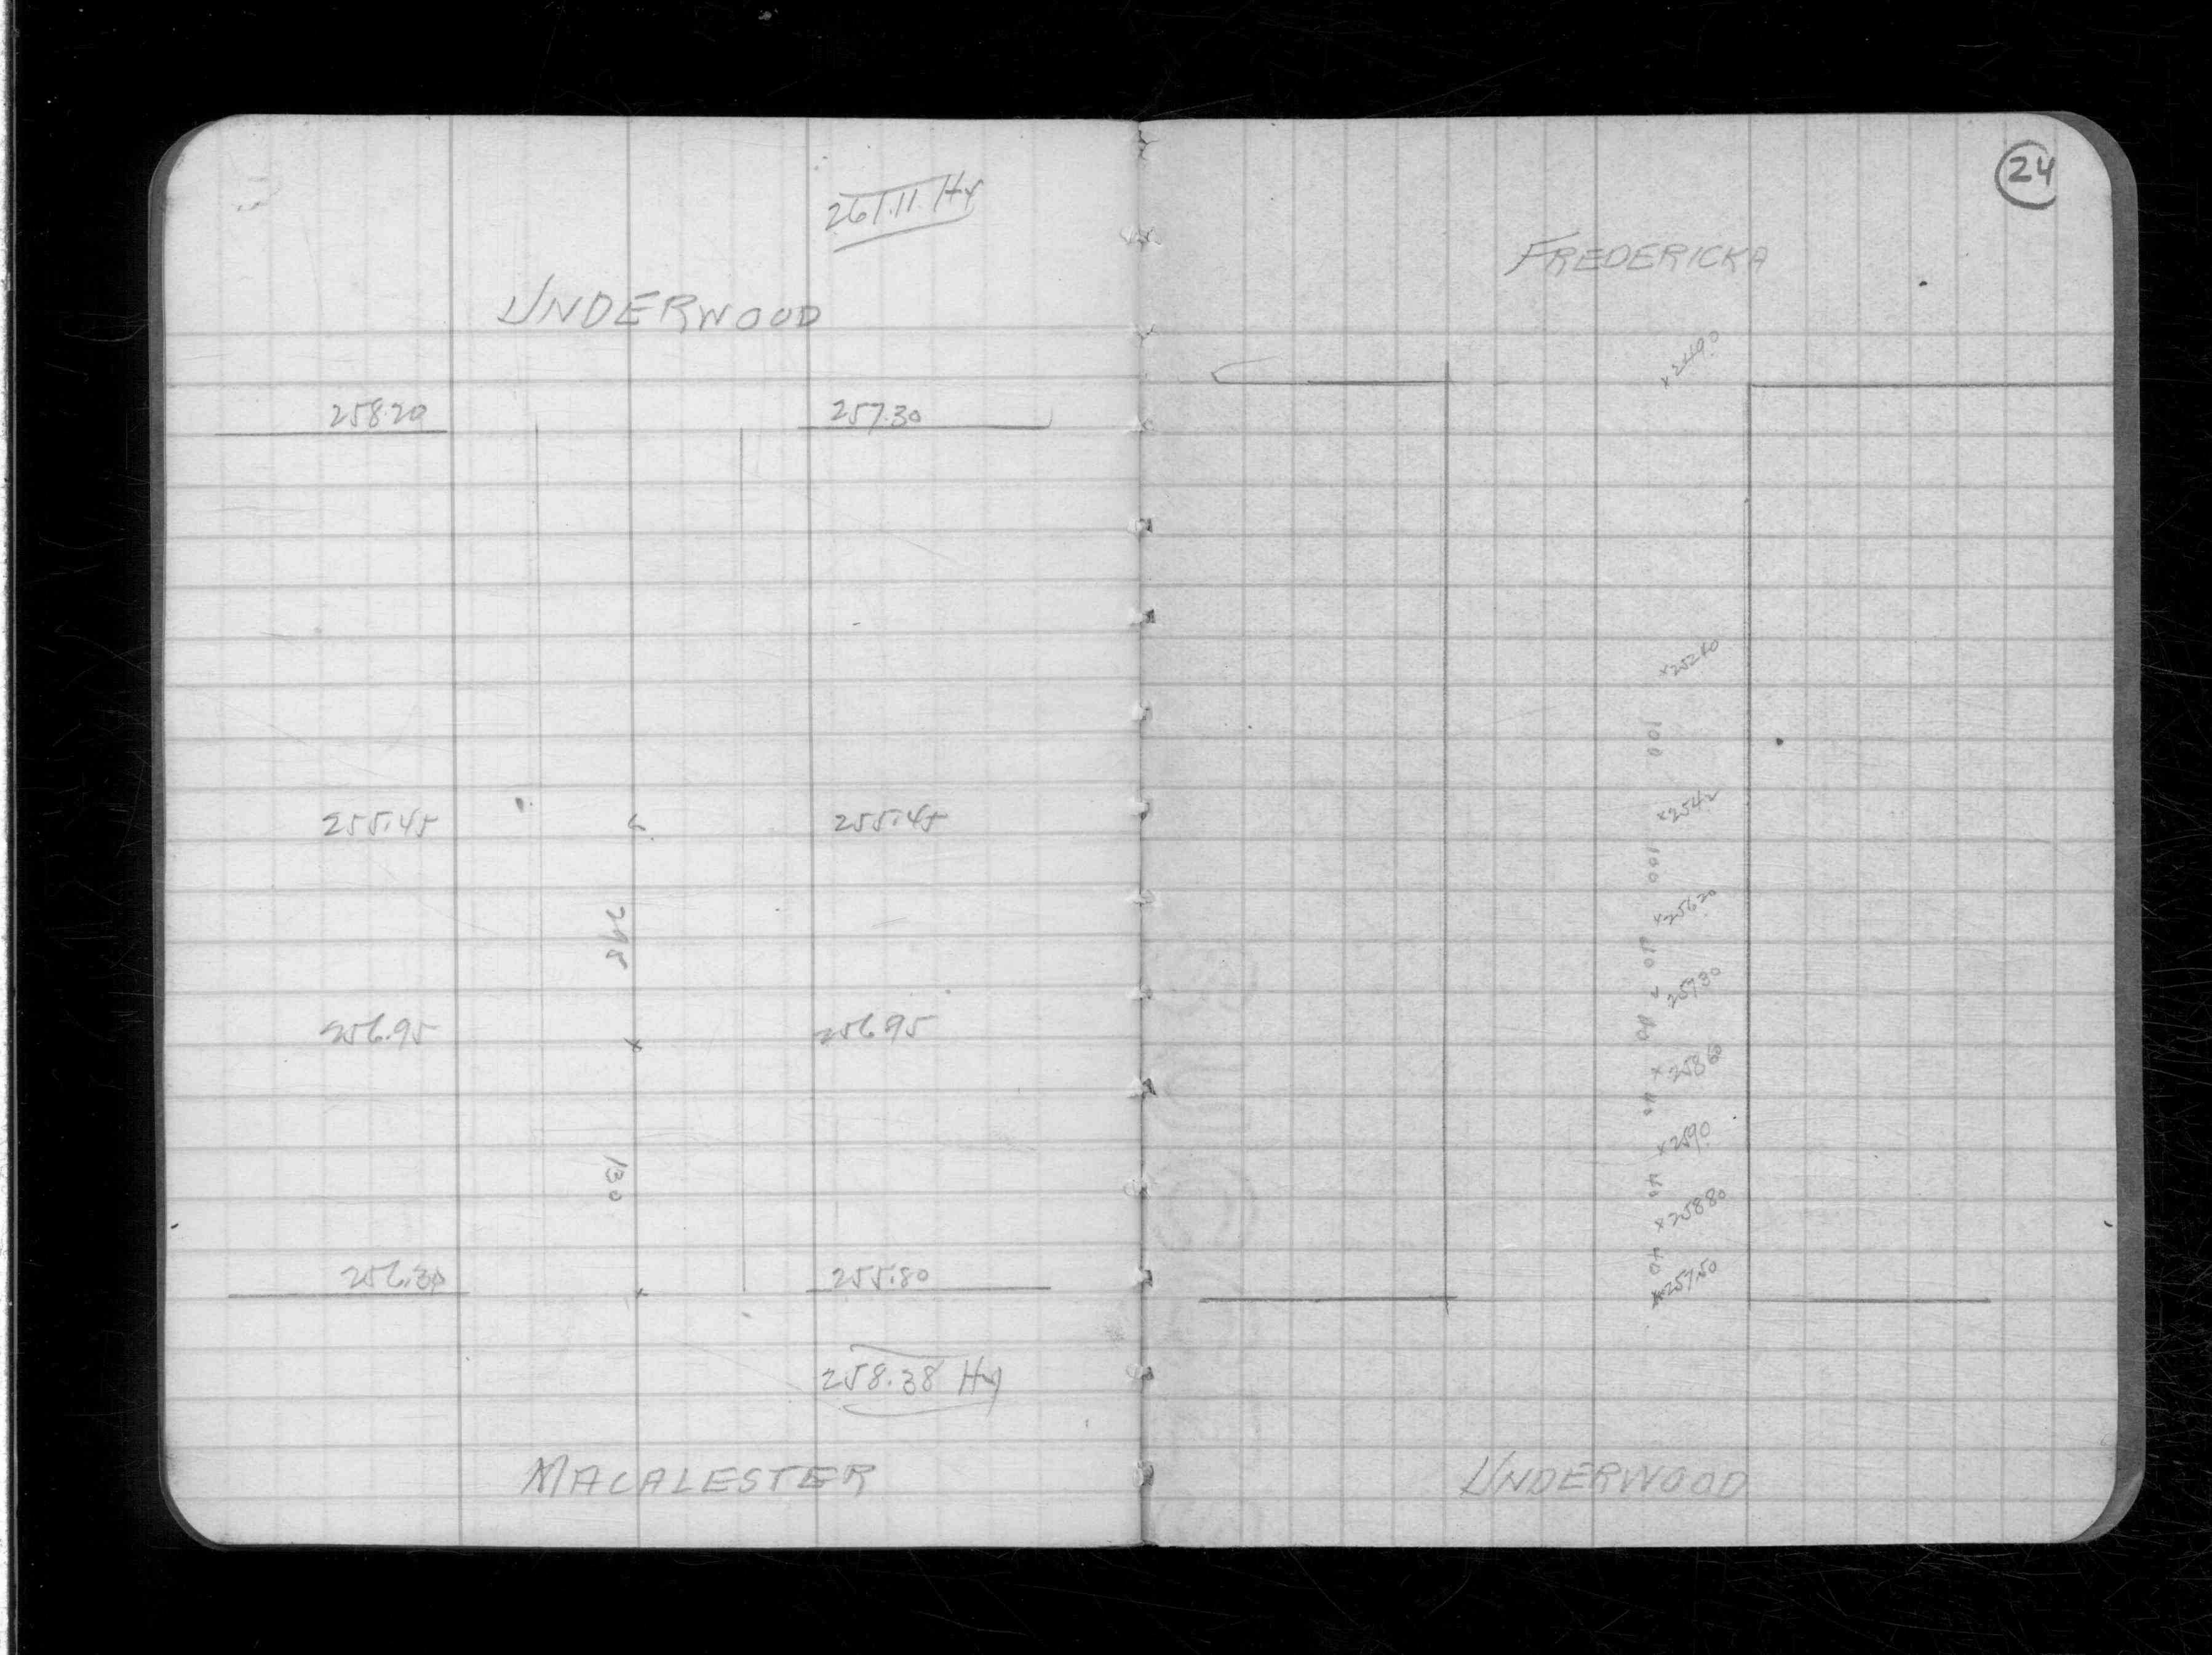 261.11 Hy
UNDERWOOD
258.20 257.30
255.45 255.45
295
256.95 256.95
130
256.30 255.80
258.38 Hy
MACALESTER
24
FREDERICKA
x 249.0
x 252.60
100
x 254.2
100
x 256.20
40
x 257.30
40
x 258.60
40
x 259.0
40
x 258.80
40
x 257.50
UNDERWOOD